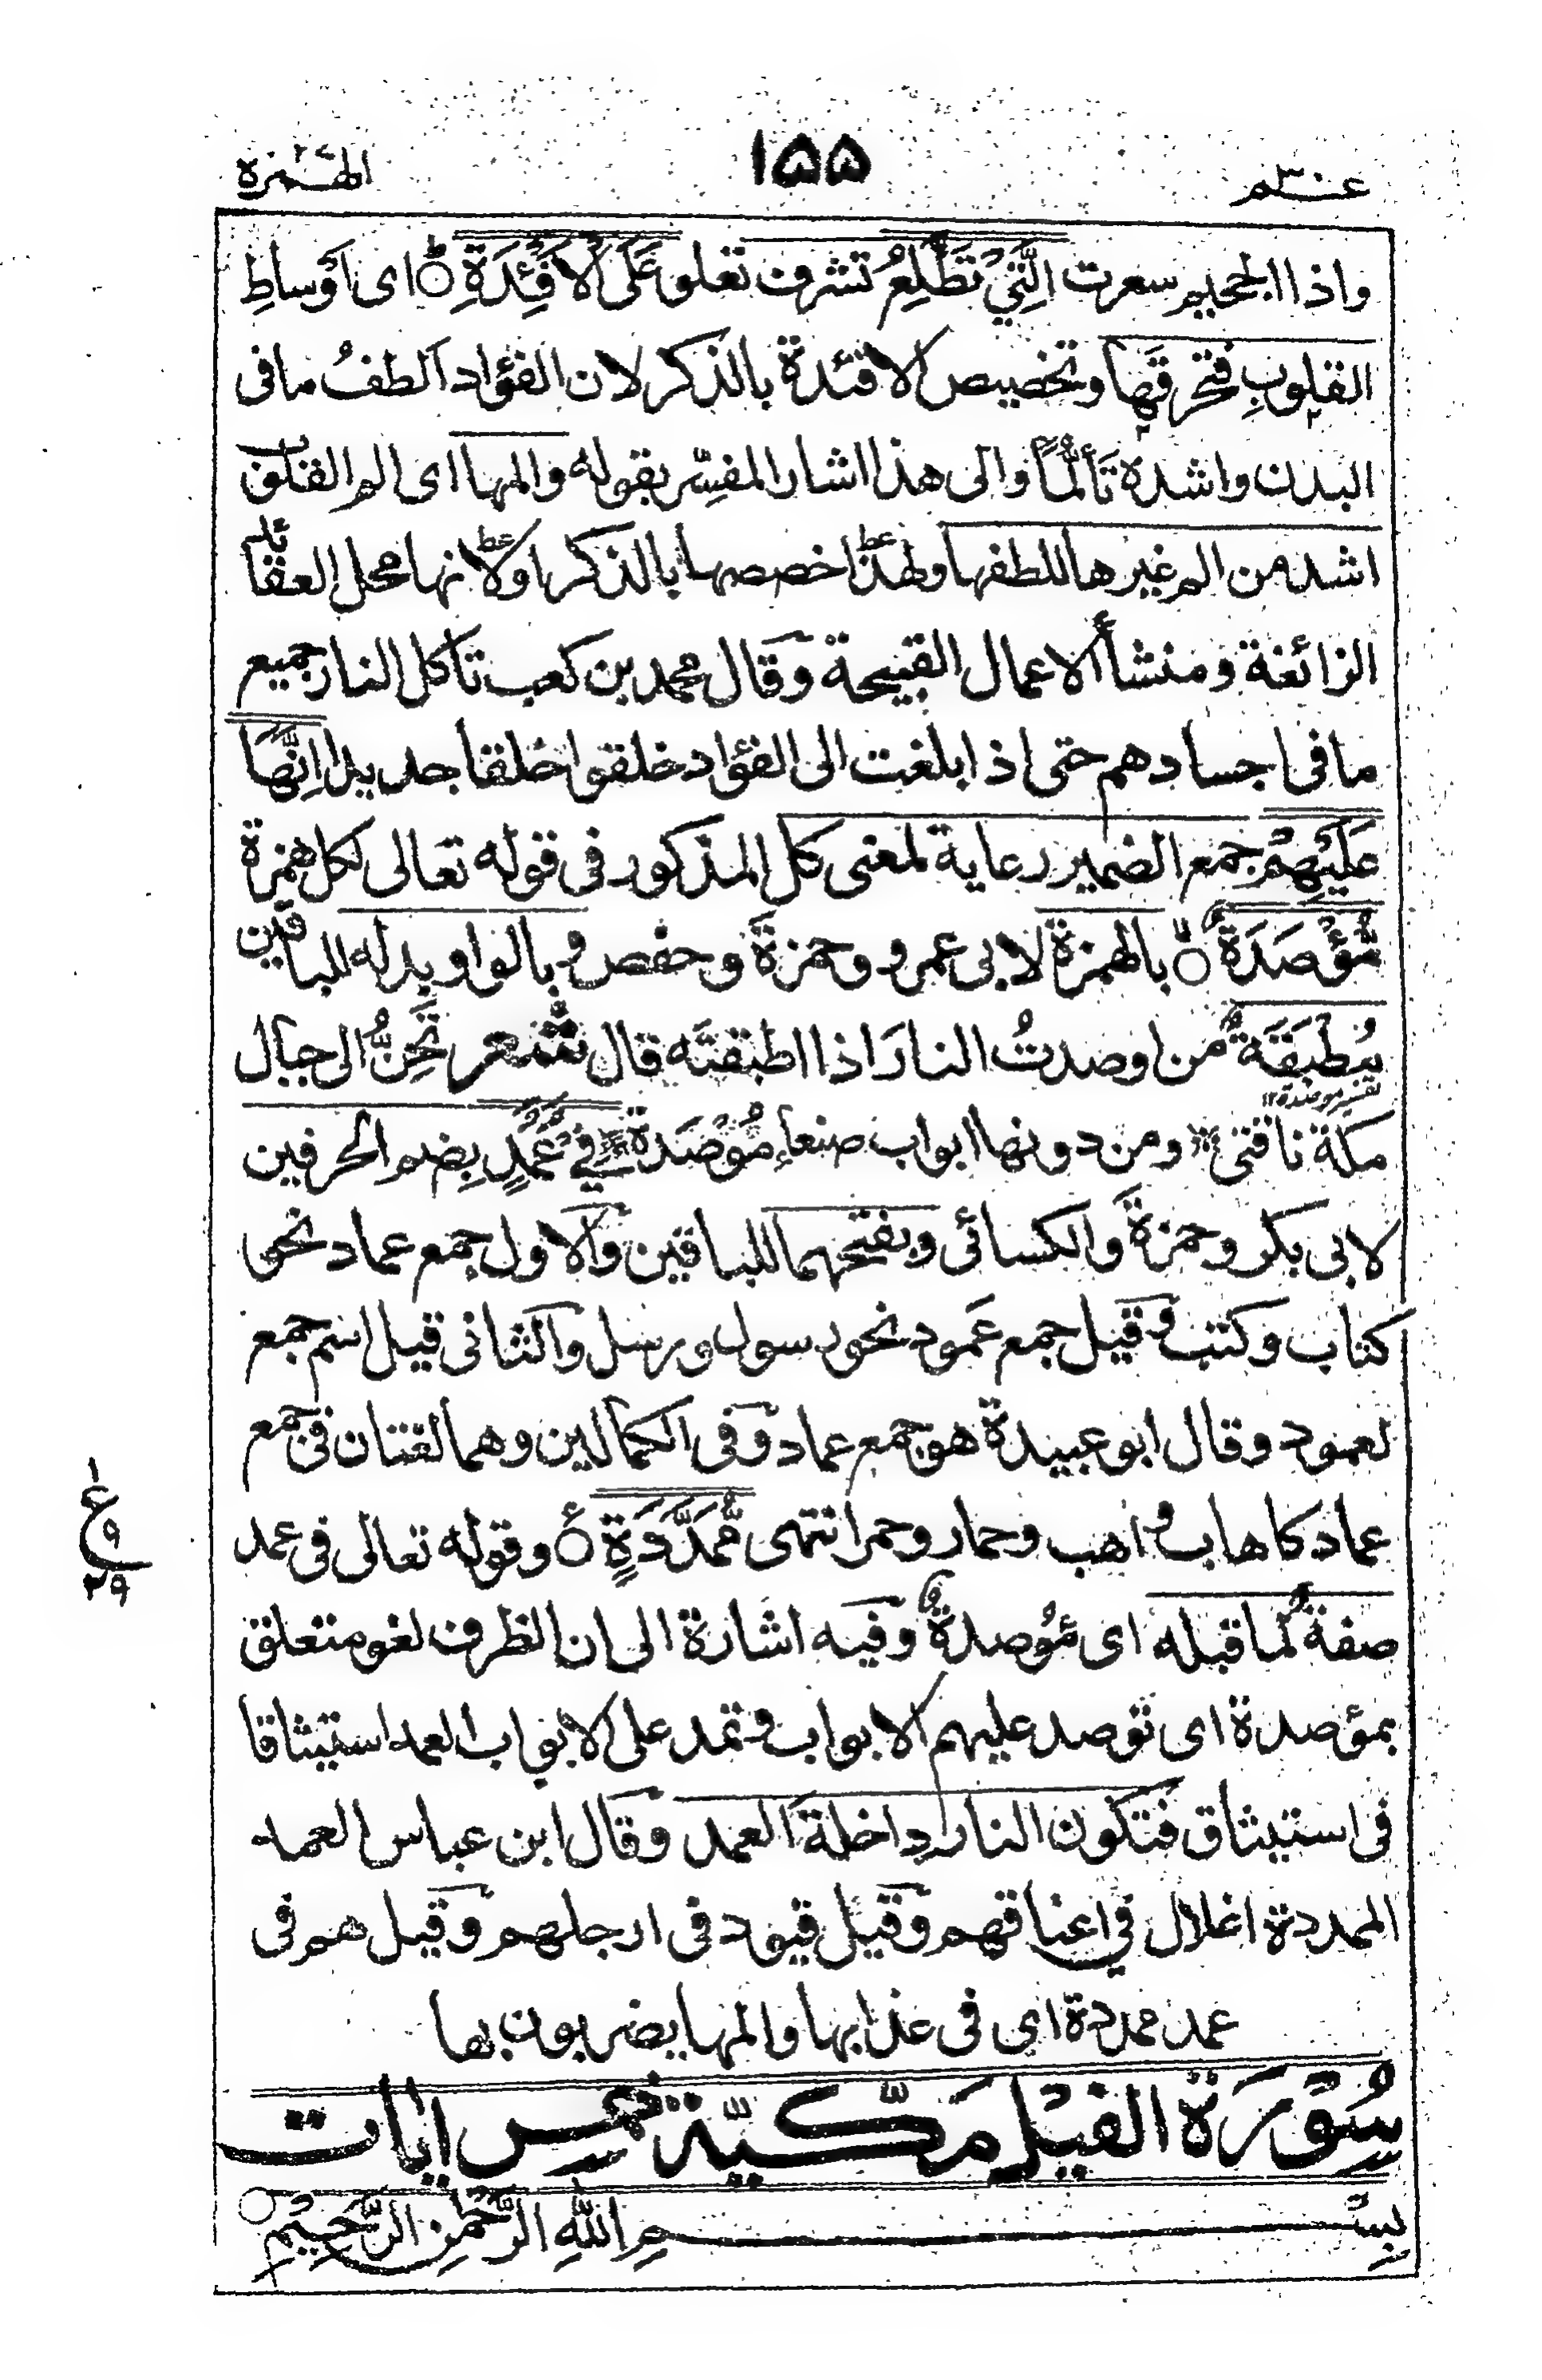 عم ٣٠
١٥٥
الهمزة
واذا الجحيم سعرت الَّتِيْ تَطَّلِعُ تشرف تعلو عَلَى الْاَفْئِدَةِ ای اَوْساطِ
القلوبِ فتحرقَها وتخصيص الافئدة بالذكر لان الفؤاد الطفُ مافی
البدن واشده تَألُّماً والی هذا اشار المفسِّر بقوله والمها ای الم القلوب
اشد من الم غيرها للطفها ولهذا خصصها بالذكر اولا نها محل العقائد
الزائغة ومنشأ الاعمال القبيحة وقال محمد بن كعب تاكل النار جميع
مافی اجسادهم حتی اذا بلغت الی الفؤاد خلقوا خلقا جديدا اِنَّهَا
عَلَيْهِمْ جمع الضمير رعاية لمعنی كل المذكور فی قوله تعالی لكل همزة
مُّؤْصَدَةٌ بالهمزة لابی عمرو وحمزة وحفص وبالواو بدله للباقين
مُطْبَقَةٌ من اوصدتُ النارَ اذا اطبقته قال شعر تَحِنُّ الی جبال
تفسير موصدة ١٢
مكة ناقتی ومن دونها ابواب صنعاء مُوْصَدَة فِيْ عُمُدٍ بِضم الحرفين
لابی بكر وحمزة والكسائی وبفتحهما للباقين والاول جمع عماد نحو
كتاب وكتب وقيل جمع عَمود نحو رسول ورسل والثانی قيل اسم جمع
لعمود وقال ابو عبيدة هو جمع عماد وفی الكمالين وهما لغتان فی جمع
عماد كاهاب واهب وحمار وحمر انتهی مُّمَدَّدَةٍ وقوله تعالی فی عمد
صفة لما قبله ای مُؤصدة وفيه اشارة الی ان الظرف لغو متعلق
بمؤصدة ای تؤصد عليهم الابواب وتمد علی الابواب العمد استيثاقا
فی استيثاق فتكون النار داخلة العمد وقال ابن عباس العمد
الممددة اغلال فی اعناقهم وقيل قيود فی ارجلهم وقيل هم فی
عمد ممددة ای فی عذابها والمها يضربون بها
١
ع
٩
٢٩
سُوْرَةُ الفيل مَكّيّة خمس ايات
بِسْمِ اللهِ الرَّحْمٰنِ الرَّحِيْمِ